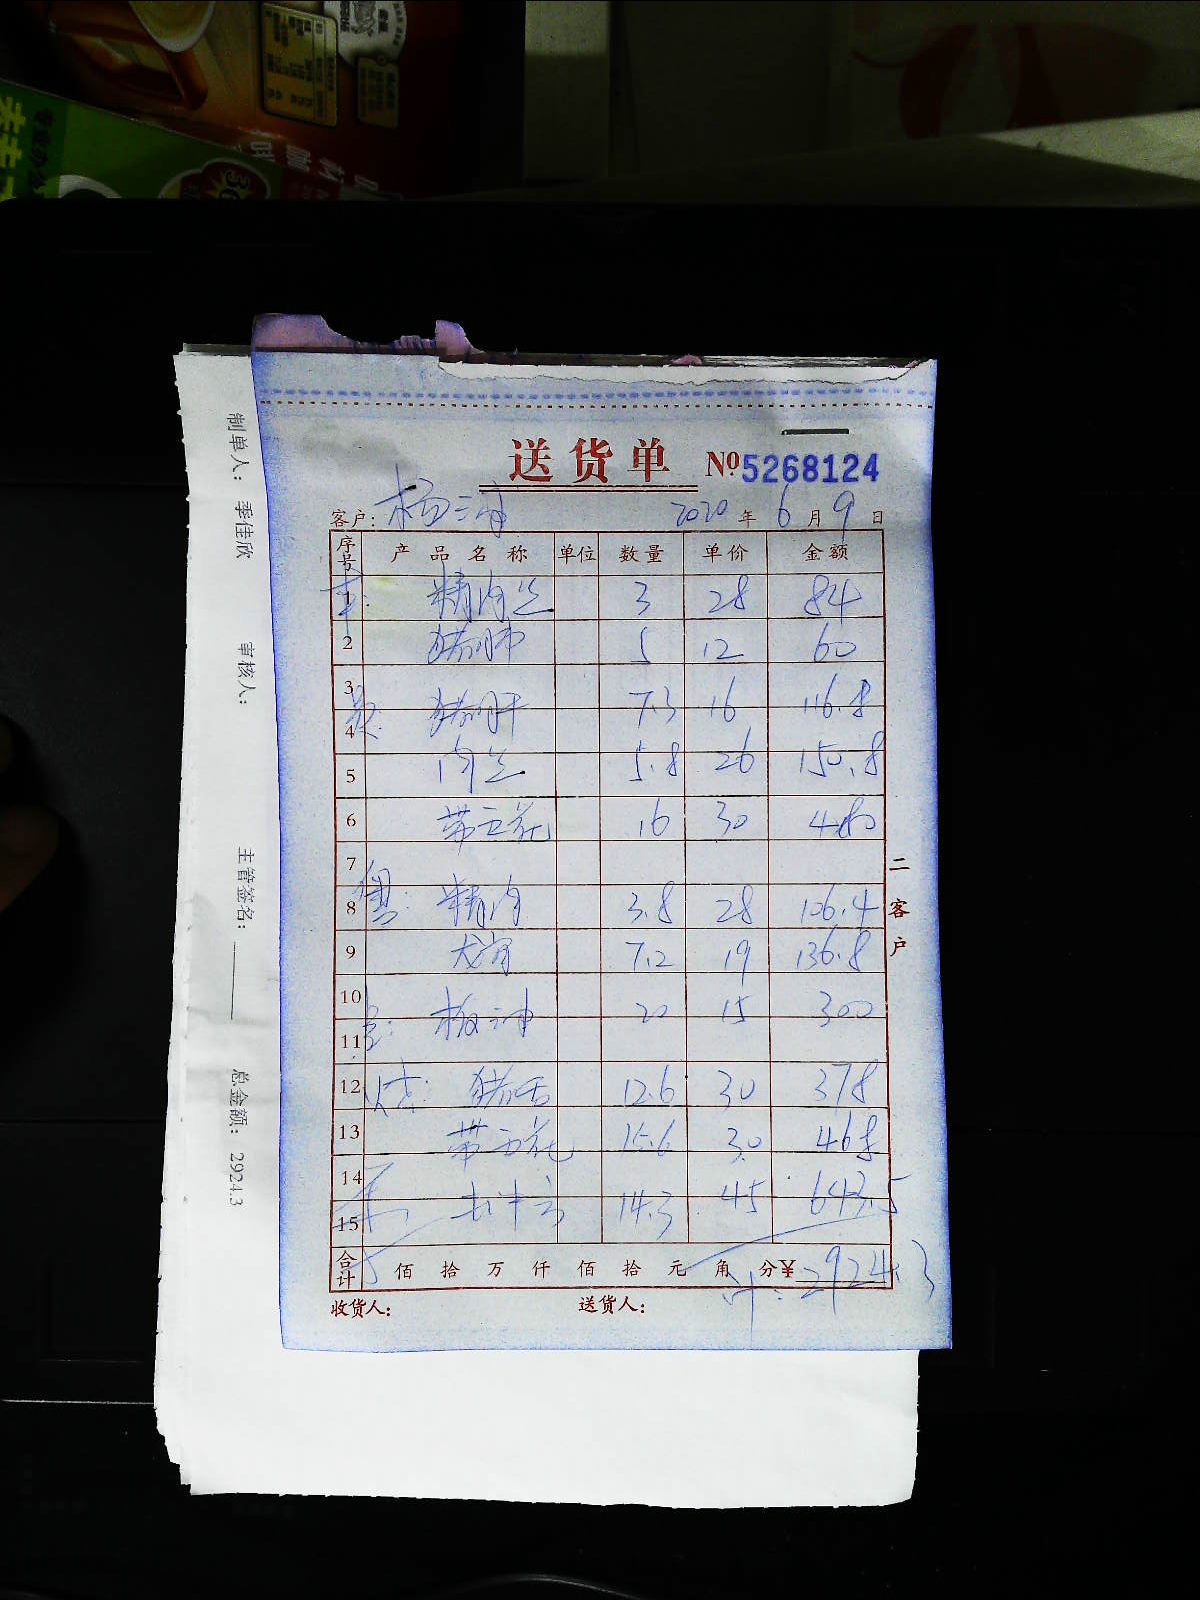 送货单 №5268124
客户: 杨三 2020年6月9日
序号 产品名称 单位 数量 单价 金额
1 精肉丝 3 28 84
2 猪肺 5 12 60
3
4 猪肝 7.3 16 116.8
5 肉丝 5.8 26 150.8
6 带五花 16 30 480
7
8 精肉 3.8 28 106.4
9 7.2 19 136.8
10
11 板油 20 15 300
12 猪舌 12.6 30 378
13 带五花 15.6 30 468
14
15 14.3 45 643.5
合计 佰拾万仟佰拾元角分¥ 2924.3
收货人: 送货人:
二客户
制单人: 季佳欣 审核人: 主管签名: 总金额: 2924.3